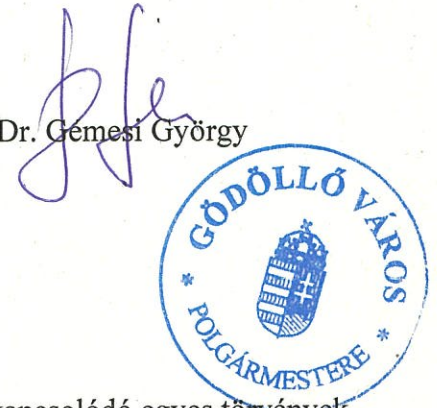 Dr. Gémesi György
GÖDÖLLŐ VÁROS
* POLGÁRMESTERE *
kapcsolódó egyes törvények